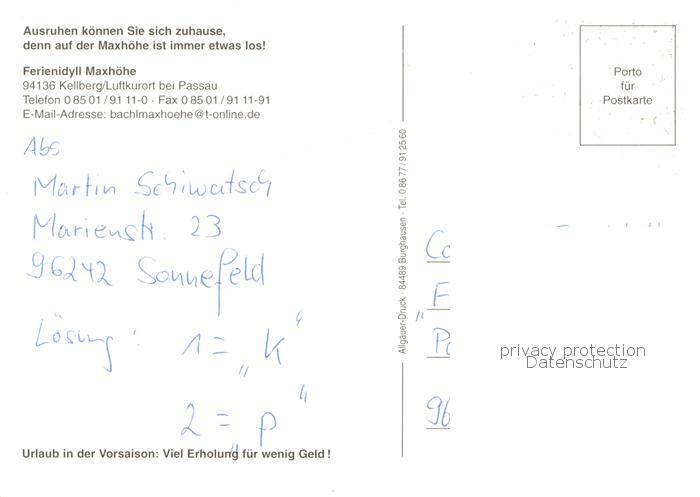 Ausruhen können Sie sich zuhause,
denn auf der Maxhöhe ist immer etwas los!
Ferienidyll Maxhöhe
94136 Kellberg/Luftkurort bei Passau
Telefon 0 85 01 / 91 11-0 · Fax 0 85 01 / 91 11-91
E-Mail-Adresse: bachlmaxhoehe@t-online.de
Abs
Martin Schiwatsch
Marienstr. 23
96242 Sonnefeld
Lösung: 1 = „K"
2 = „p"
Urlaub in der Vorsaison: Viel Erholung für wenig Geld!
Allgäuer-Druck · 84489 Burghausen · Tel. 0 86 77 / 91 25 60
Porto
für
Postkarte
96
privacy protection
Datenschutz